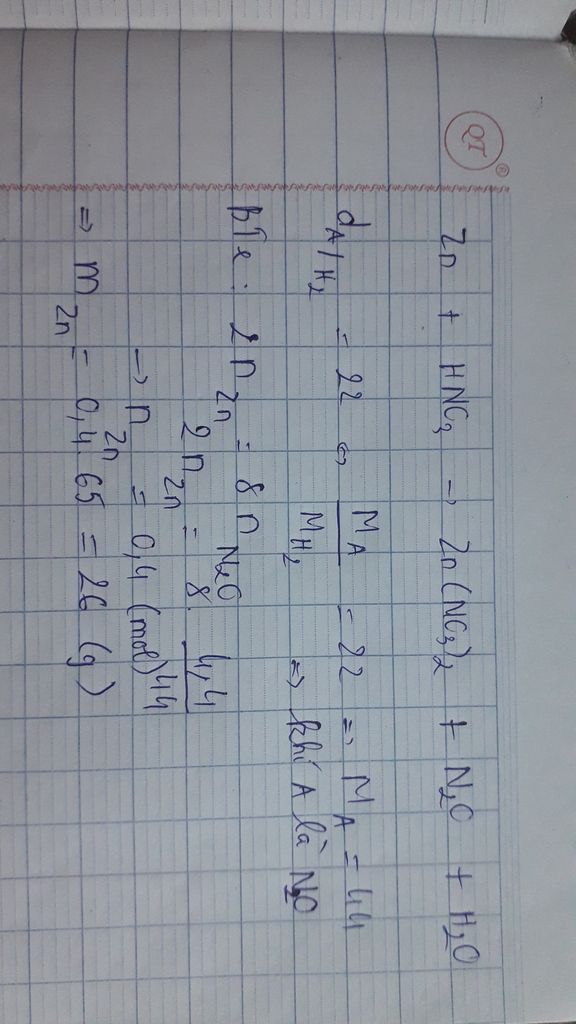 QT ®
Zn + HNO3 → Zn(NO3)2 + N2O + H2O
dA/H2 = 22 ⇔ MA/MH2 = 22 ⇒ MA = 44
⇒ khí A là N2O
BT e: 2nZn = 8nN2O
2nZn = 8. 4,4/44
→ nZn = 0,4 (mol)
⇒ mZn = 0,4.65 = 26 (g)